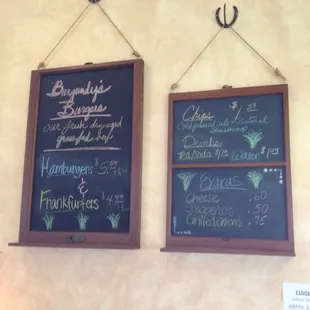 Burgundy's
Burgers
our fresh dry-aged
grass fed beef
Hamburgers $5.
&
Frankfurters $4.
Chips $1
sea salt natural
Seasoning
Drinks
Tea/Soda Water $1
Extras
Cheese .60
Jalapeños .50
Grilled Onions .75
HAPPY